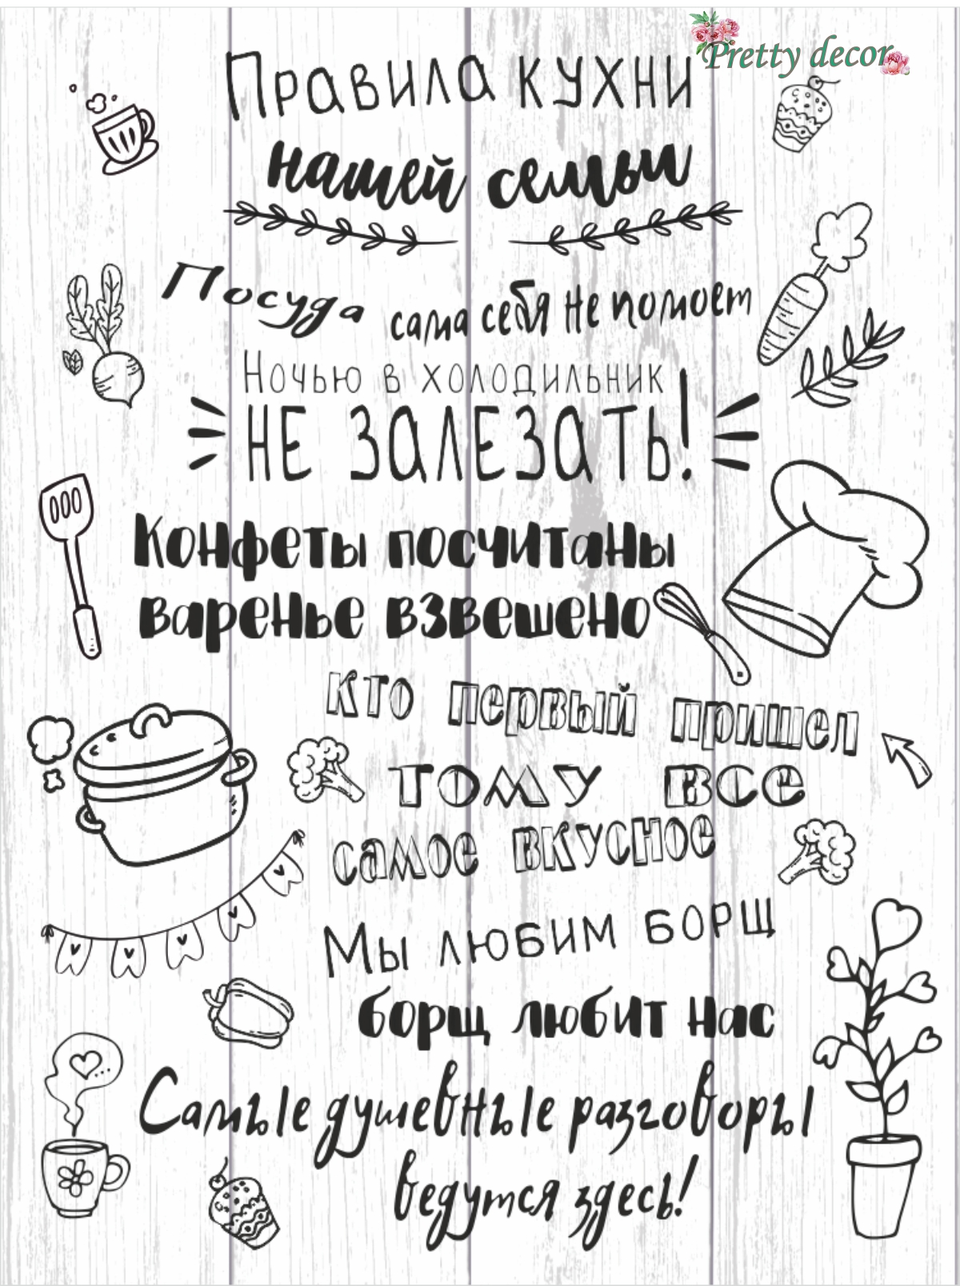 Pretty decor
Правила кухни
нашей семьи
Посуда сама себя не помоет
Ночью в холодильник
НЕ ЗАЛЕЗАТЬ!
Конфеты посчитаны
варенье взвешено
кто первый пришел
тому все
самое вкусное
Мы любим борщ
борщ любит нас
Самые душевные разговоры
ведутся здесь!